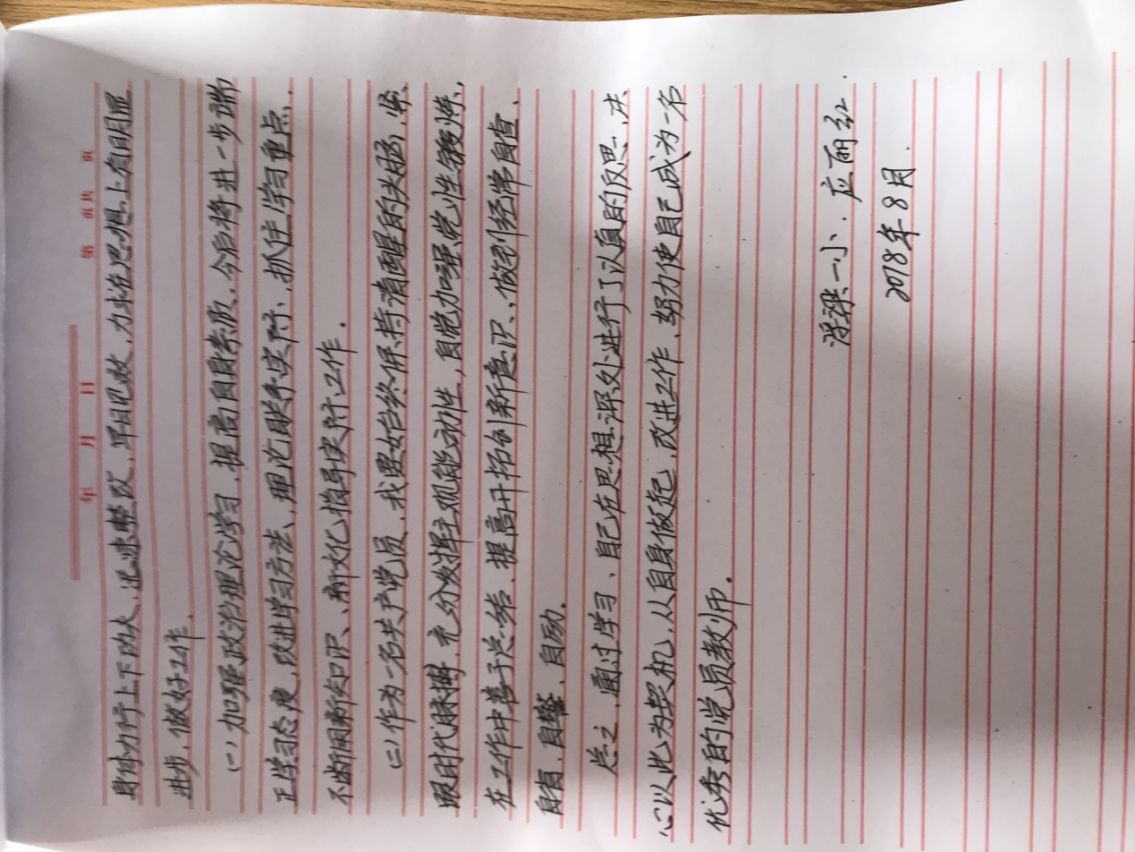 年 月 日 第 页 共 页
身体力行上下功夫,迅速整改,早日见效,力求在思想上有明显
进步,做好工作。
(一)加强政治理论学习,提高自身素质,今后将进一步端
正学习态度,改进学习方法,理论联系实际、抓住学习重点,
不断用新知识、新文化指导实际工作。
(二)作为一名共产党员,我要始终保持清醒的头脑,紧
跟时代脉搏,充分发挥主观能动性,自觉加强党性锻炼,
在工作中善于总结,提高开拓创新意识、做到经常自查、
自省、自警、自励。
总之,通过学习、自己在思想深处进行了认真的反思,决
心以此为契机,从自身做起,改进工作、努力使自己成为一名
优秀的党员教师。
浮梁一小:应丽红.
2018年8月.